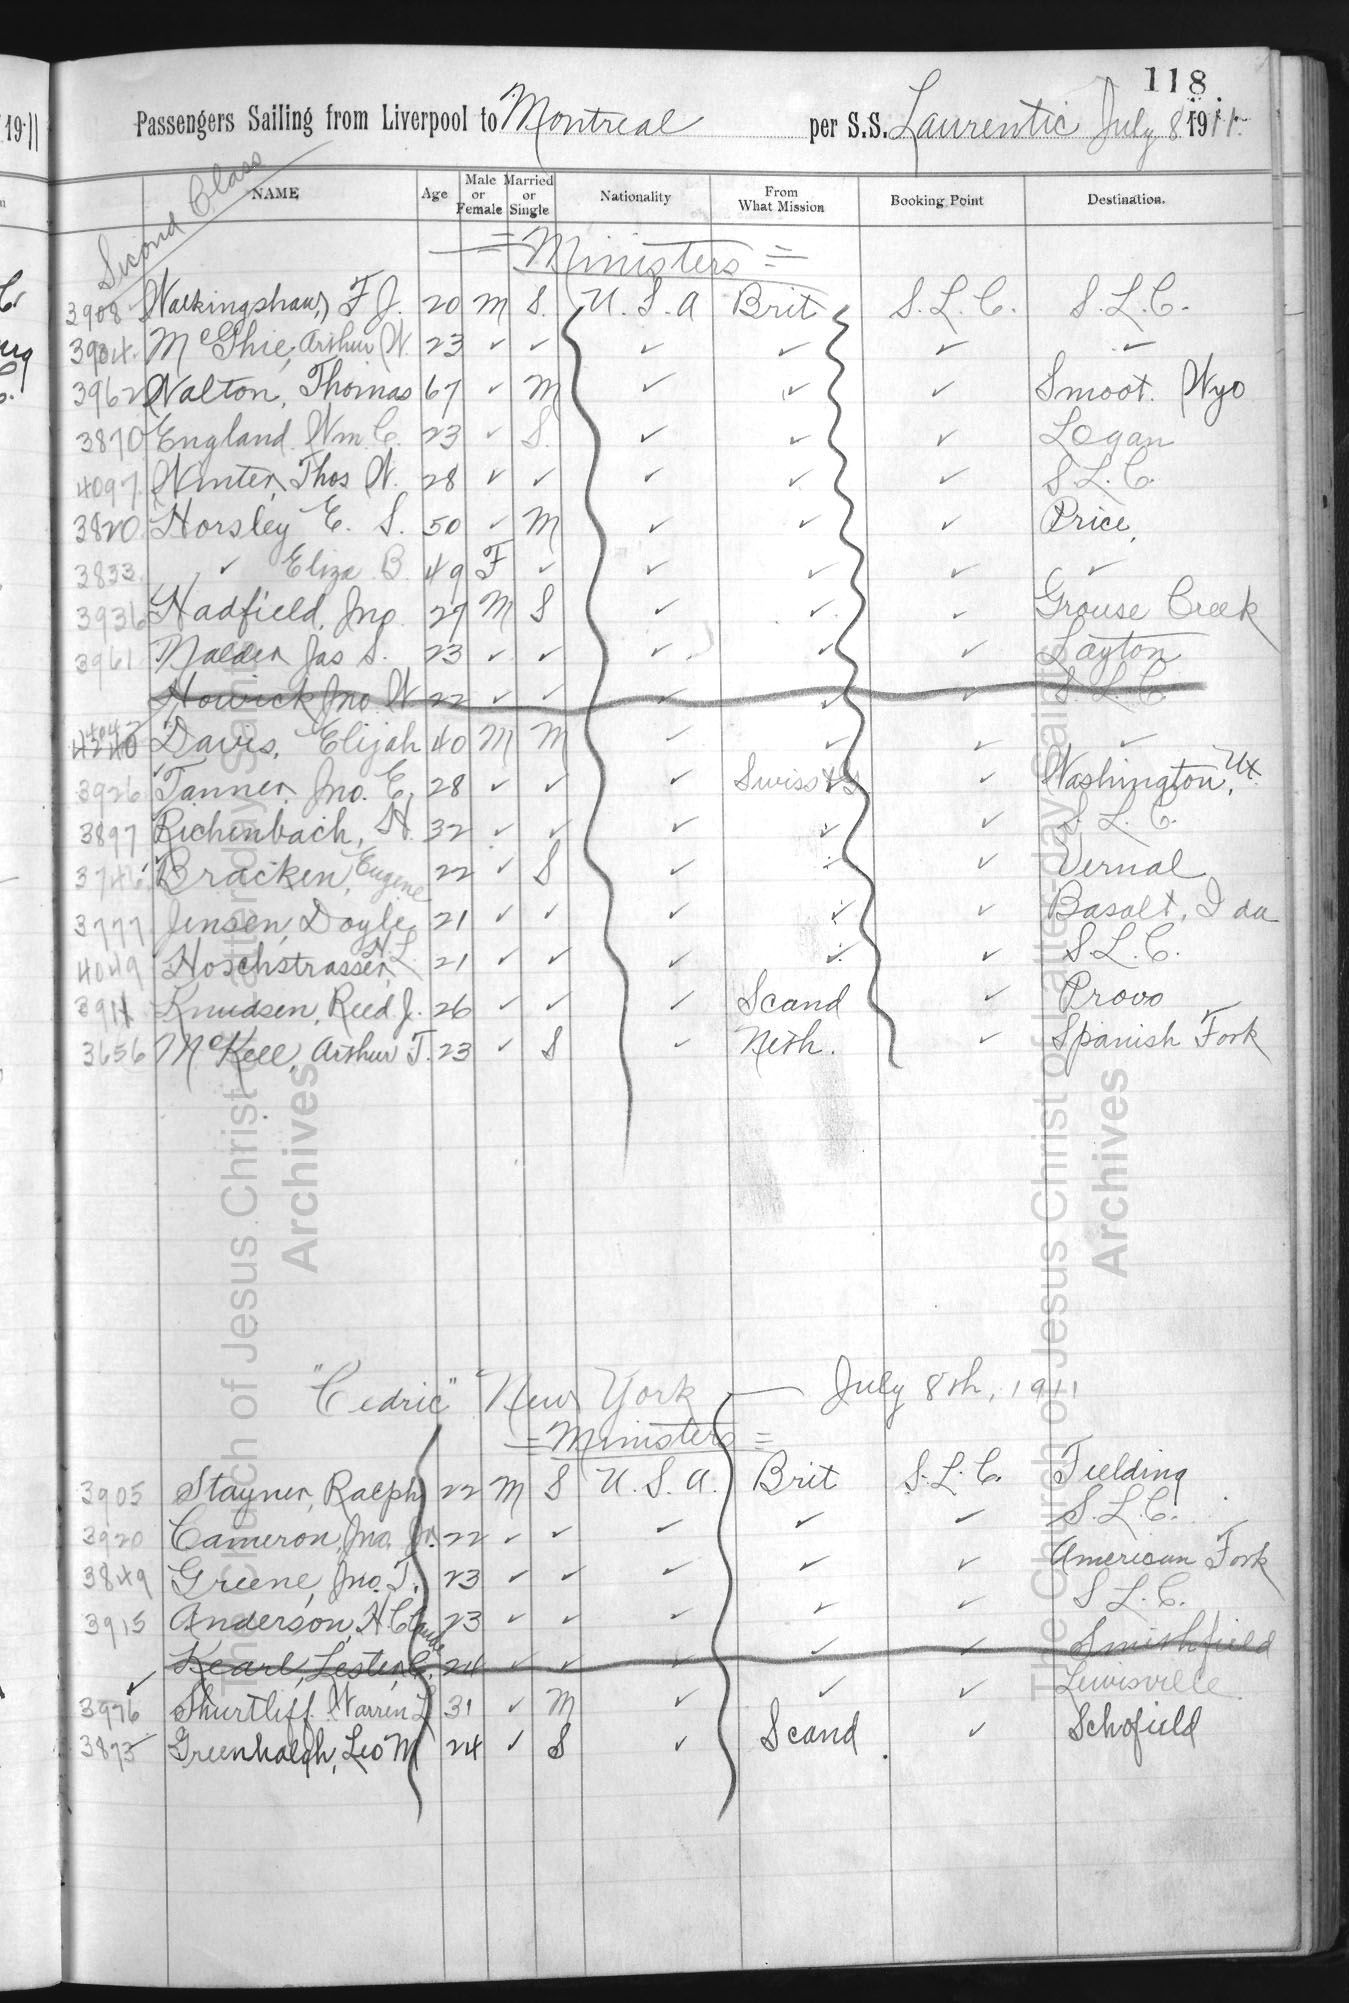 118
Passengers Sailing from Liverpool to Montreal per S.S. Laurentic July 8 1911.
Second Class
NAME Age Male or Female Married or Single Nationality From What Mission Booking Point Destination.
= Ministers =
3908 Walkingshaw, F J. 20 M S. U. S. A Brit S. L. C. S. L. C.
3904. McGhie, Arthur W. 23 ✓ ✓ ✓ ✓ ✓ ✓
3962 Walton, Thomas 67 ✓ M ✓ ✓ ✓ Smoot. Wyo
3870 England Wm. C. 23 ✓ S. ✓ ✓ ✓ Logan
4097. Winter, Thos W. 28 ✓ ✓ ✓ ✓ ✓ S. L. C.
3820 Horsley E. S. 50 ✓ M ✓ ✓ ✓ Price,
3833. ✓ Eliza B. 49 F ✓ ✓ ✓ ✓ ✓
3936 Hadfield, Jno. 27 M S ✓ ✓ ✓ Grouse Creek
3961 Nalder Jas S. 23 ✓ ✓ ✓ ✓ ✓ Layton
Howick Jno W 22 ✓ ✓ ✓ ✓ ✓ S. L. C.
4042
4240 Davis, Elijah 40 M M ✓ ✓ ✓ ✓
3926 Tanner, Jno. E. 28 ✓ ✓ ✓ Swiss & G ✓ Washington, Ut.
3897 Richenbach, H. 32 ✓ ✓ ✓ ✓ ✓ S. L. C.
3746 Bracken, Eugene 22 ✓ S ✓ ✓ ✓ Vernal
3777 Jensen, Doyle 21 ✓ ✓ ✓ ✓ ✓ Basalt, Ida
4049 Hoschstrasser, H. L. 21 ✓ ✓ ✓ ✓ ✓ S. L. C.
3911 Knudsen, Reed J. 26 ✓ ✓ ✓ Scand ✓ Provo
3656 McKell, Arthur T. 23 ✓ S ✓ Neth. ✓ Spanish Fork
"Cedric" New York — July 8th, 1911
= Ministers =
3905 Stayner, Ralph 22 M S U. S. A. Brit S. L. C. Fielding
3920 Cameron, Jno. Jr. 22 ✓ ✓ ✓ ✓ ✓ S. L. C.
3849 Greene, Jno. T. 23 ✓ ✓ ✓ ✓ ✓ American Fork
3915 Anderson, H. Claude 23 ✓ ✓ ✓ ✓ ✓ S. L. C.
Kearl, Lester C. 24 ✓ ✓ ✓ ✓ ✓ Smithfield
3976 Shurtliff Warren L 31 ✓ M ✓ ✓ ✓ Lewisville
3873 Greenhalgh, Leo M 24 ✓ S ✓ Scand ✓ Schofield
The Church of Jesus Christ of Latter-day Saints
Archives
The Church of Jesus Christ of Latter-day Saints
Archives
1911